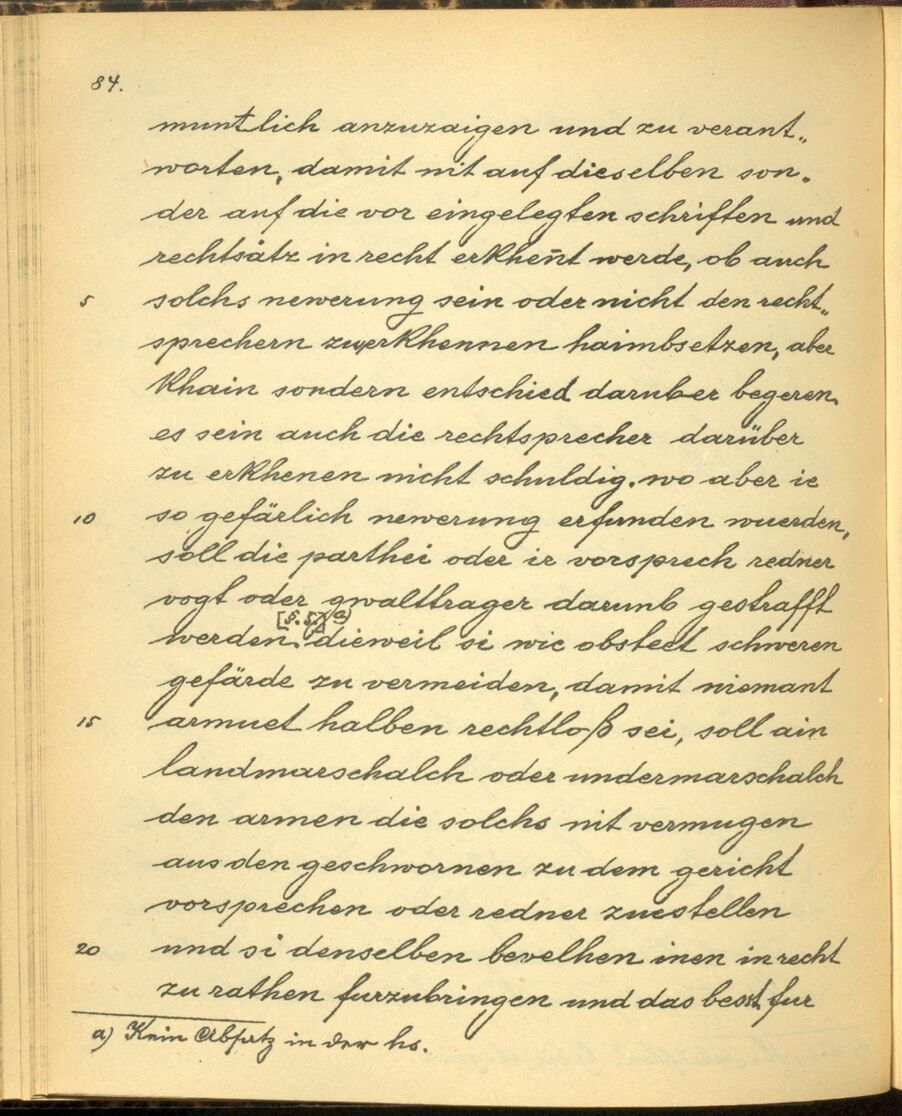 84.
muntlich anzuzaigen und zu verant„
worten, damit nit auf dieselben son„
der auf die vor eingelegten schriften und
rechtsätz in recht erkhen̄t werde, ob auch
5 solchs newerung sein oder nicht den recht„
sprechern zu erkhennen haimbsetzen, aber
khain sondern entschied daruber begeren.
es sein auch die rechtsprecher darüber
zu erkhenen nicht schuldig. wo aber ie
10 so gefärlich newerung erfunden wuerden,
soll die parthei oder ir vorsprech redner
vogt oder gwalttrager darumb gestrafft
[§. 5.] a)
werden. dieweil si wie obsteet schweren
gefärde zu vermeiden, damit niemant
15 armuet halben rechtloß sei, soll ain
landmarschalch oder undermarschalch
den armen die solchs nit vermugen
aus den geschwornen zu dem gericht
vorsprechen oder redner zuestellen
20 und si denselben bevelhen inen in recht
zu rathen furzubringen und das best fur
a) Kein Absatz in der hs.